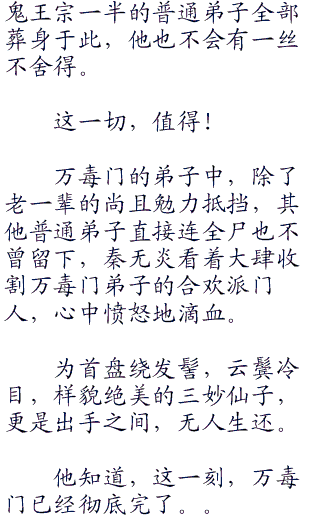 鬼王宗一半的普通弟子全部
葬身于此，他也不会有一丝
不舍得。
这一切，值得！
万毒门的弟子中，除了
老一辈的尚且勉力抵挡，其
他普通弟子直接连全尸也不
曾留下，秦无炎看着大肆收
割万毒门弟子的合欢派门
人，心中愤怒地滴血。
为首盘绕发髻，云鬓冷
目，样貌绝美的三妙仙子，
更是出手之间，无人生还。
他知道，这一刻，万毒
门已经彻底完了。。